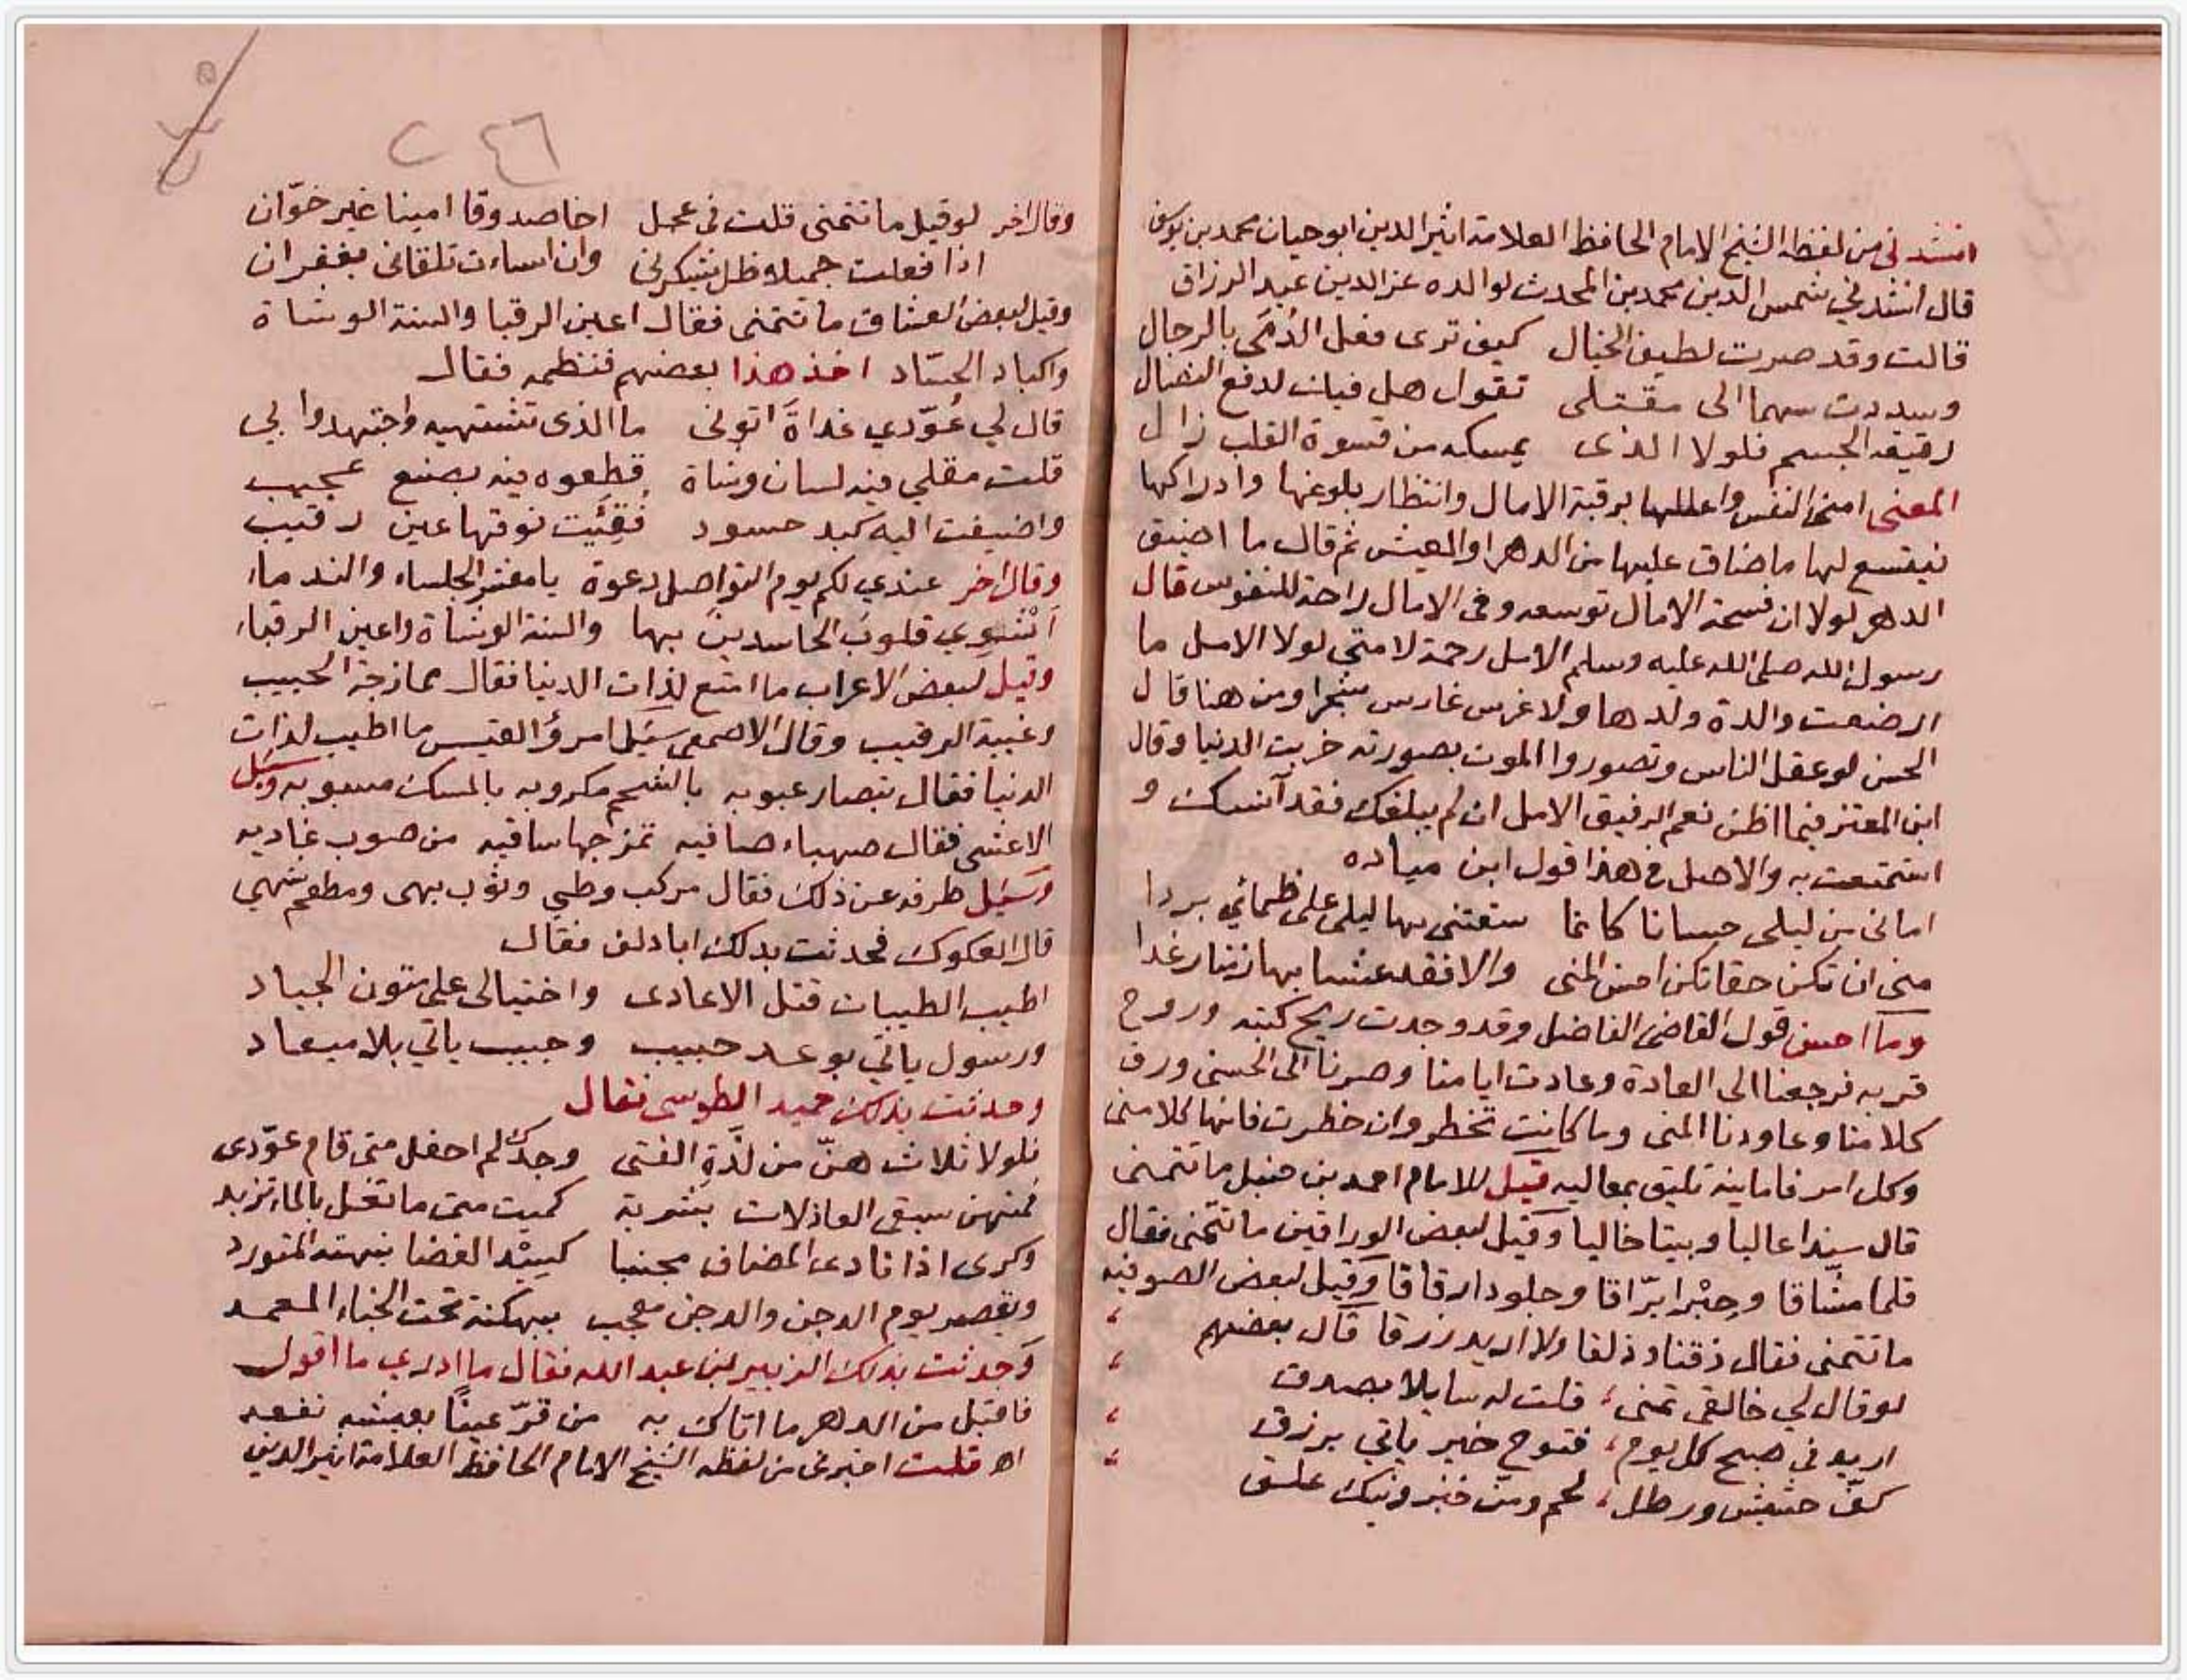 انشدنى من لفظه الشيخ الامام الحافظ العلامة اثير الدين ابو حيان محمد بن يوسف
قال انشدني شمس الدين محمد بن المحدث لوالده عز الدين عبد الرزاق
قالت وقد صرت لطيف الخيال كيف ترى فعل الدُمَى بالرجال
وسددت سهما الى مقتلى تقول هل فيك لدفع النضال
رقيقة الجسم فلولا الذى يمسكه من قسوة القلب زال
المعنى امنى النفس واعللها برقبة الامال وانتظار بلوغها وادراكها
فيتسع لها ما ضاق عليها من الدهر او العيش ثم قال ما اضيق
الدهر لولا ان فسحة الامال توسعه وفى الامال راحة للنفوس قال
رسول الله صلى الله عليه وسلم الامل رحمة لامتى لولا الامل ما
ارضعت والدة ولدها ولا غرس غارس شجرا ومن هنا قال
الحسن لو عقل الناس وتصوروا الموت بصورته خربت الدنيا وقال
ابن المعتز فيما اظن نعم الرفيق الامل ان لم يبلغك فقد آنسك و
استمتعت به والاصل فى هذا قول ابن مياده
امانى من ليلى حسانا كانما سقتنى بها ليلى على ظمائي بردا
منى ان تكن حقا تكن احسن المنى والا فقد عشنا بها زمنا رغدا
وما احسن قول القاضى الفاضل وقد وجدت ريح كتبه وروح
قربه فرجعنا الى العادة وعادت ايامنا وصرنا الى الحسنى ورق
كلامنا وعاودنا المنى وما كانت تخطر وان خطرت فانها كلا منى
وكل امر فامانيه تليق بمعاليه قيل للامام احمد بن حنبل ما تتمنى
قال سندا عاليا وبيتا خاليا وقيل لبعض الوراقين ما تتمنى فقال
قلما مشّاقا وحِبْرا برّاقا وجلودا رقاقا وقيل لبعض الصوفيه
ما تتمنى فقال ذقنا ودلقا ولا اريد رزقا قال بعضهم
لو قال لي خالقى تمنى، قلت له سايلا بصدق
اريد فى صبح كل يوم، فتوح خير ياتي برزق
كفّ حشيش ورطل، لحم ومن خبز ونيك علق
٢٤٦
وقال اخر لو قيل ما تتمنى قلت فى عجل اخا صدوقا امينا غير خوّان
اذا فعلت جميلا ظل يشكرنى وان اساءت تلقانى بغفران
وقيل لبعض العشاق ما تتمنى فقال اعين الرقبا والسنة الوشاة
واكباد الحسّاد اخذ هذا بعضهم فنظمه فقال
قال لي عُوّدي غداةَ اتونى ما الذى تشتهيه واجتهدوا بي
قلت مقلي فيه لسان وشاة قطعوه فيه بصنع عجيب
واضيفت اليه كبد حسود فُقِئَيت فوقها عين رقيب
وقال اخر عندي لكم يوم التواصل دعوة يا معشر الجلساء والندماء
اَشْوِي قلوبَ الحاسدين بها والسنة الوشاة واعين الرقباء
وقيل لبعض الاعراب ما امتع لذات الدنيا فقال ممازجة الحبيب
وغيبة الرقيب وقال الاصمعى سئل امرؤ القيس ما اطيب لذات
الدنيا فقال بيضا رعبوبه بالشحم مكروبه بالمسك مشبوبه وسئل
الاعشى فقال صهباء صافيه تمزجها ساقيه من صوب غاديه
وسئيل طرفه عن ذلك فقال مركب وطي وثوب بهى ومطعم شهي
قال العكوك فحدثت بذلك ابا دلف فقال
اطيب الطيبات قتل الاعادى واختيالى على متون الجياد
ورسول ياتي بوعد حبيب وحبيب ياتي بلا ميعاد
وحدثت بذلك حميد الطوسى فقال
فلولا ثلاث هنّ من لذّةِ الفتى وجدك لم احفل متى قام عوّدى
فمنهن سبقى العاذلات بشربة كميت متى ما تعل بالماء تزبد
وكرى اذا نادى المضاف مجنبا كسِيْد الغضا نبهته المتورد
وتقصير يوم الدجن والدجن معجب ببهكنة تحت الخباء المعمد
وحدثت بذلك الزبير بن عبد الله فقال ما ادري ما اقول
فاقبل من الدهر ما اتاك به من قرّ عينًا بعيشه نفعه
اه قلت اخبرنى من لفظه الشيخ الامام الحافظ العلامة اثير الدين